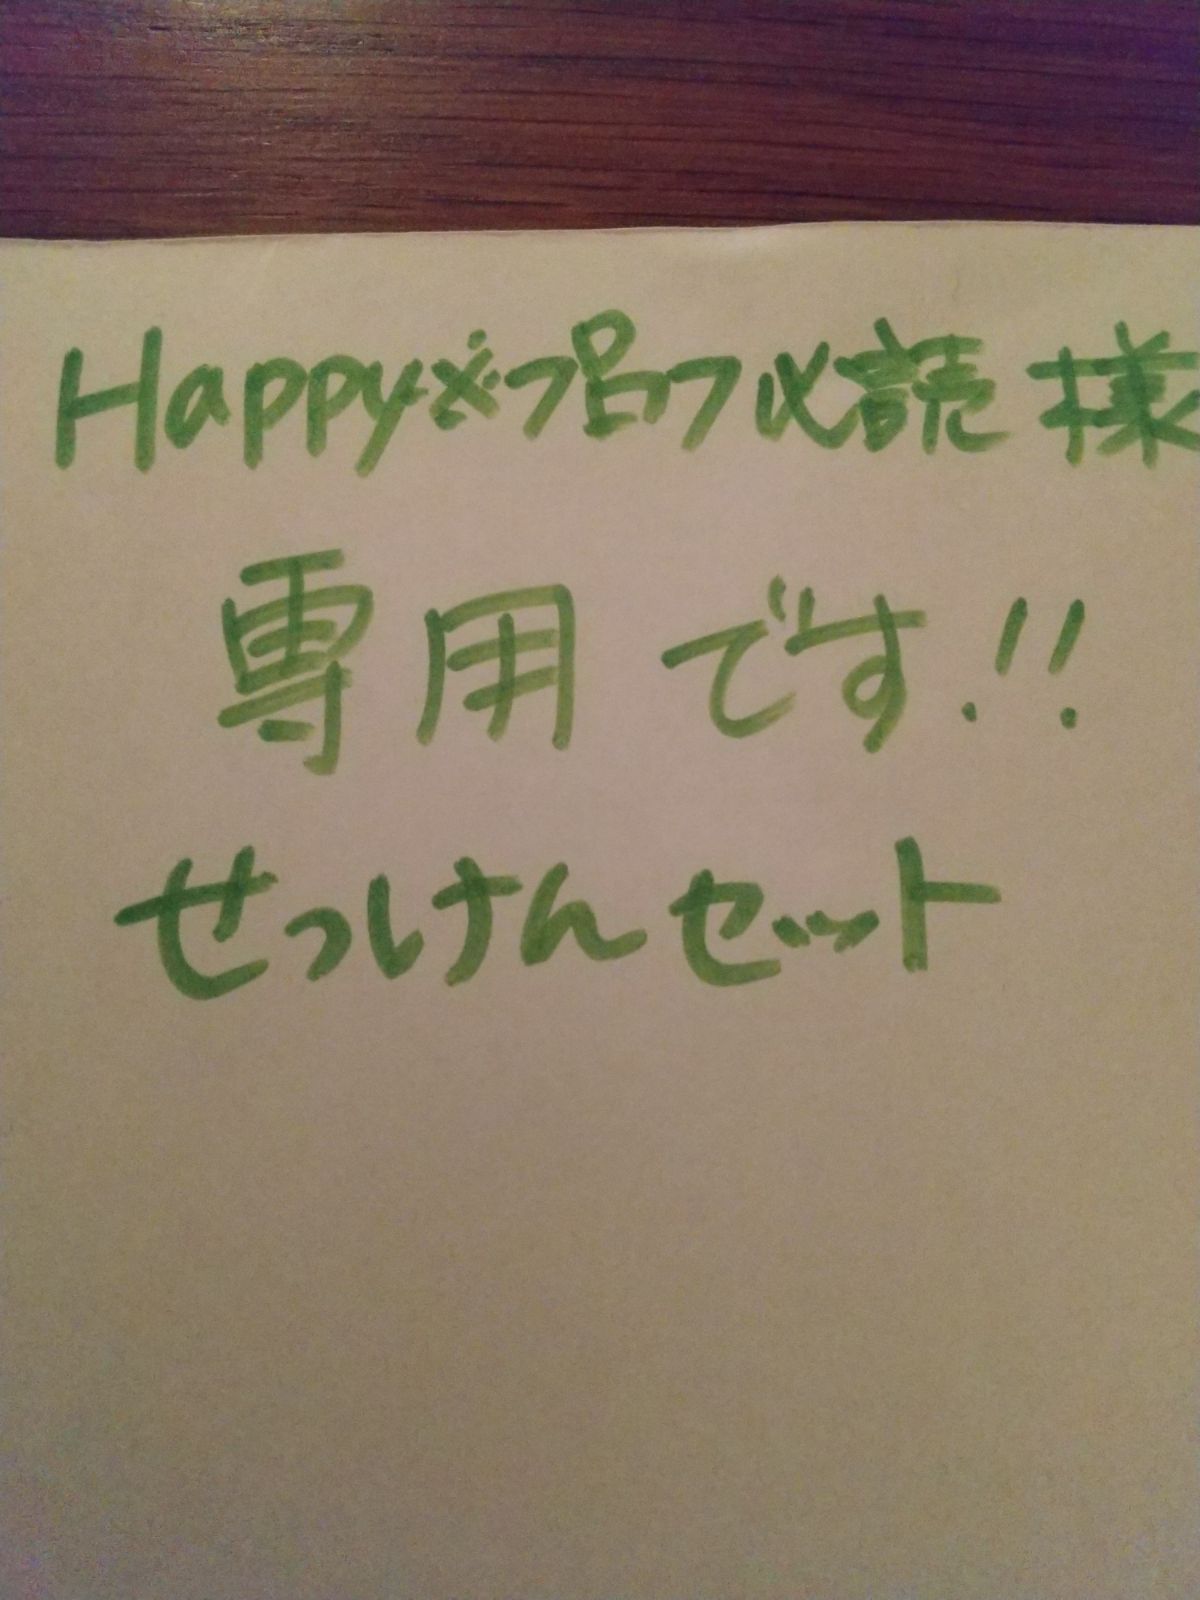 Happy※プロフ必読様
専用です!!
せっけんセット